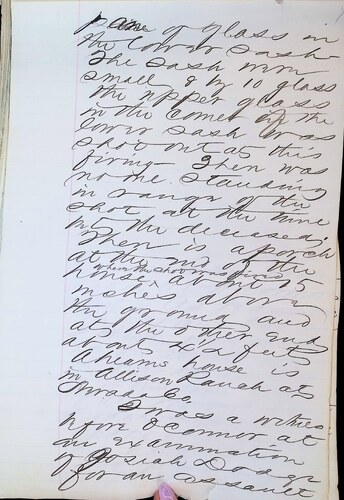 pane of glass in
the lower sash -
The sash were
small 8 by 10 glass
the upper glass
in the corner of the
lower sash was
shot out at this
firing - There was
no one standing
in range of the
shot at the time
but the deceased,
There is a porch
at the end of the
when the shot was fired
house, about 15
inches above
the ground and
at the other end
about 4½ feet
Ahearns house is
in Allison Ranch at
Nevada Co.
I was a witness
before O'Connor at
an examination
of Josiah
for an assault